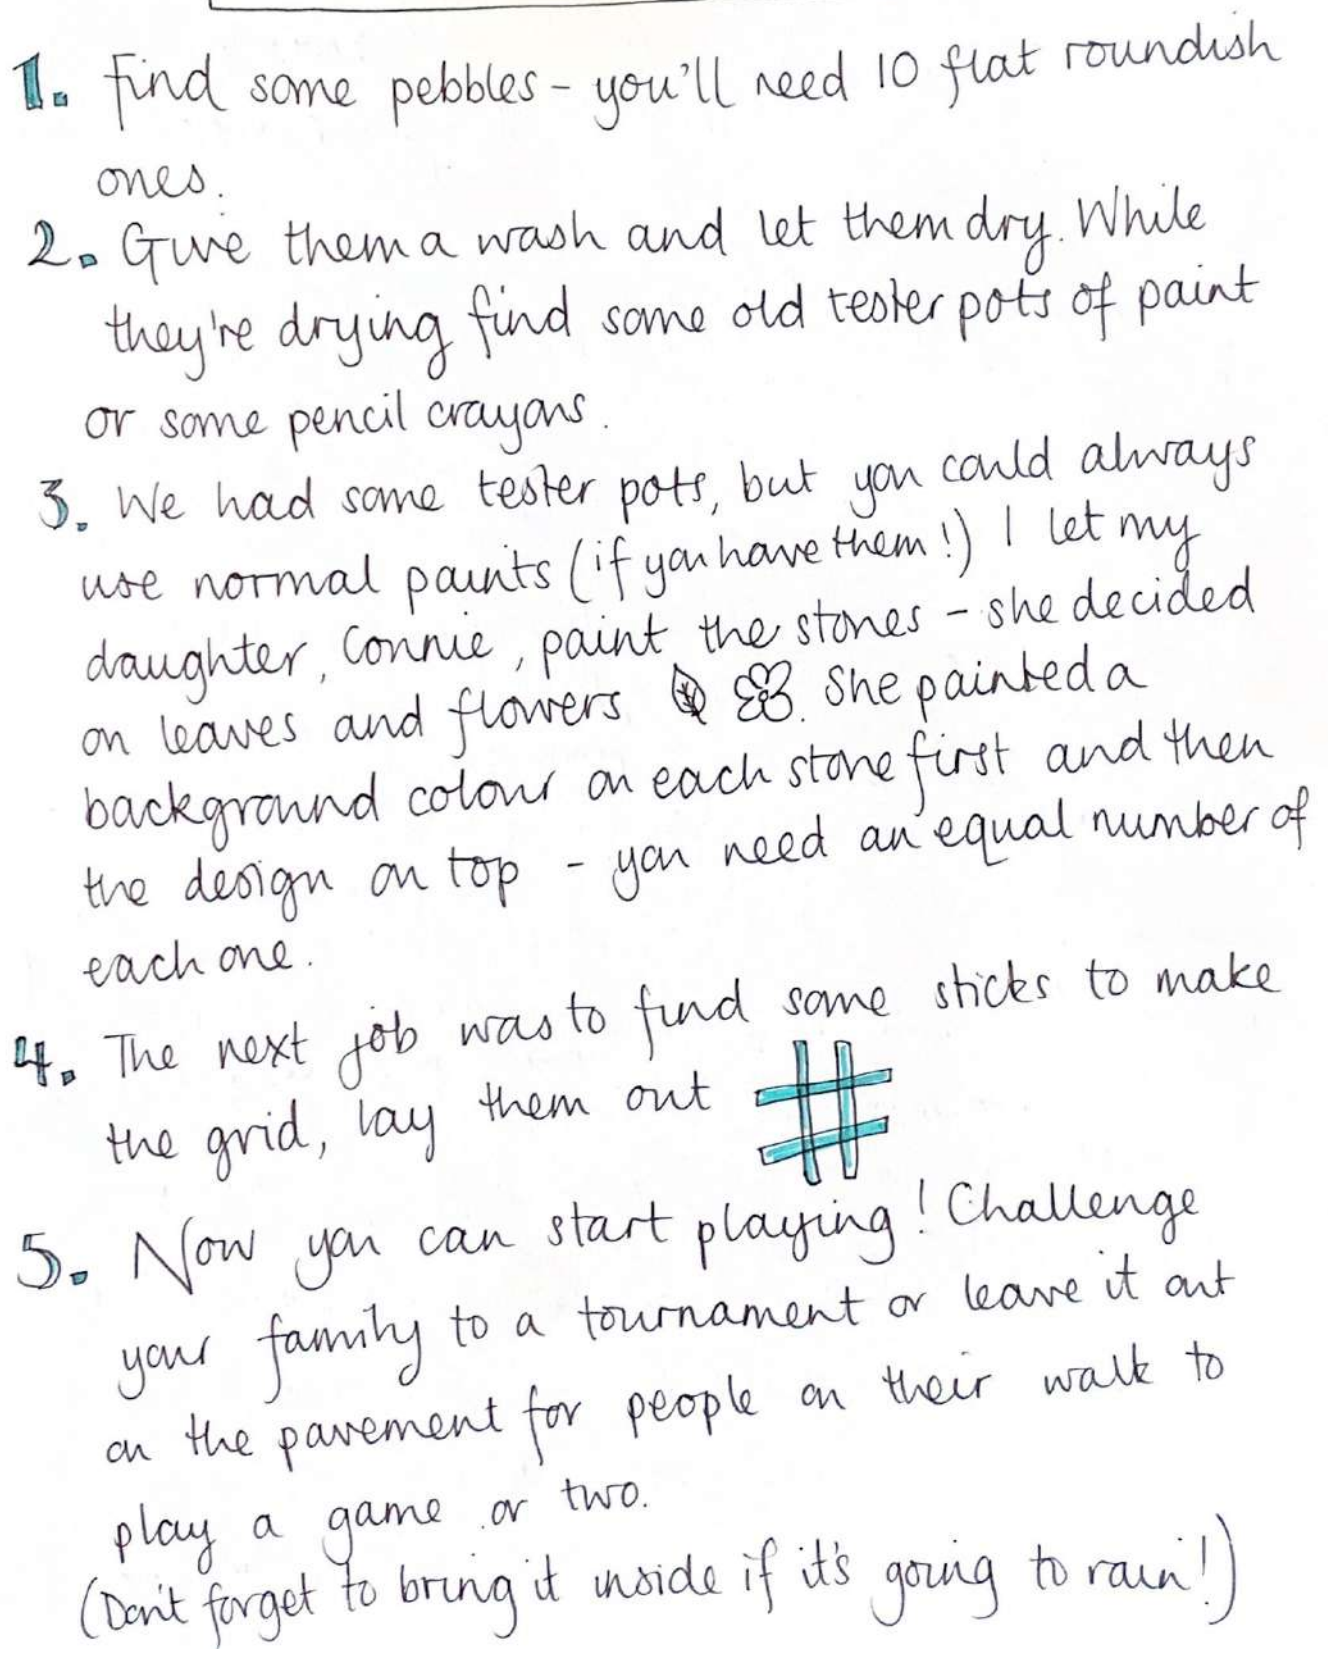 1. Find some pebbles - you'll need 10 flat roundish
ones.
2. Give them a wash and let them dry. While
they're drying find some old tester pots of paint
or some pencil crayons.
3. We had some tester pots, but you could always
use normal paints (if you have them!) I let my
daughter, Connie, paint the stones - she decided
on leaves and flowers. She painted a
background colour on each stone first and then
the design on top - you need an equal number of
each one.
4. The next job was to find some sticks to make
the grid, lay them out
5. Now you can start playing! Challenge
your family to a tournament or leave it out
on the pavement for people on their walk to
play a game or two.
(Don't forget to bring it inside if it's going to rain!)